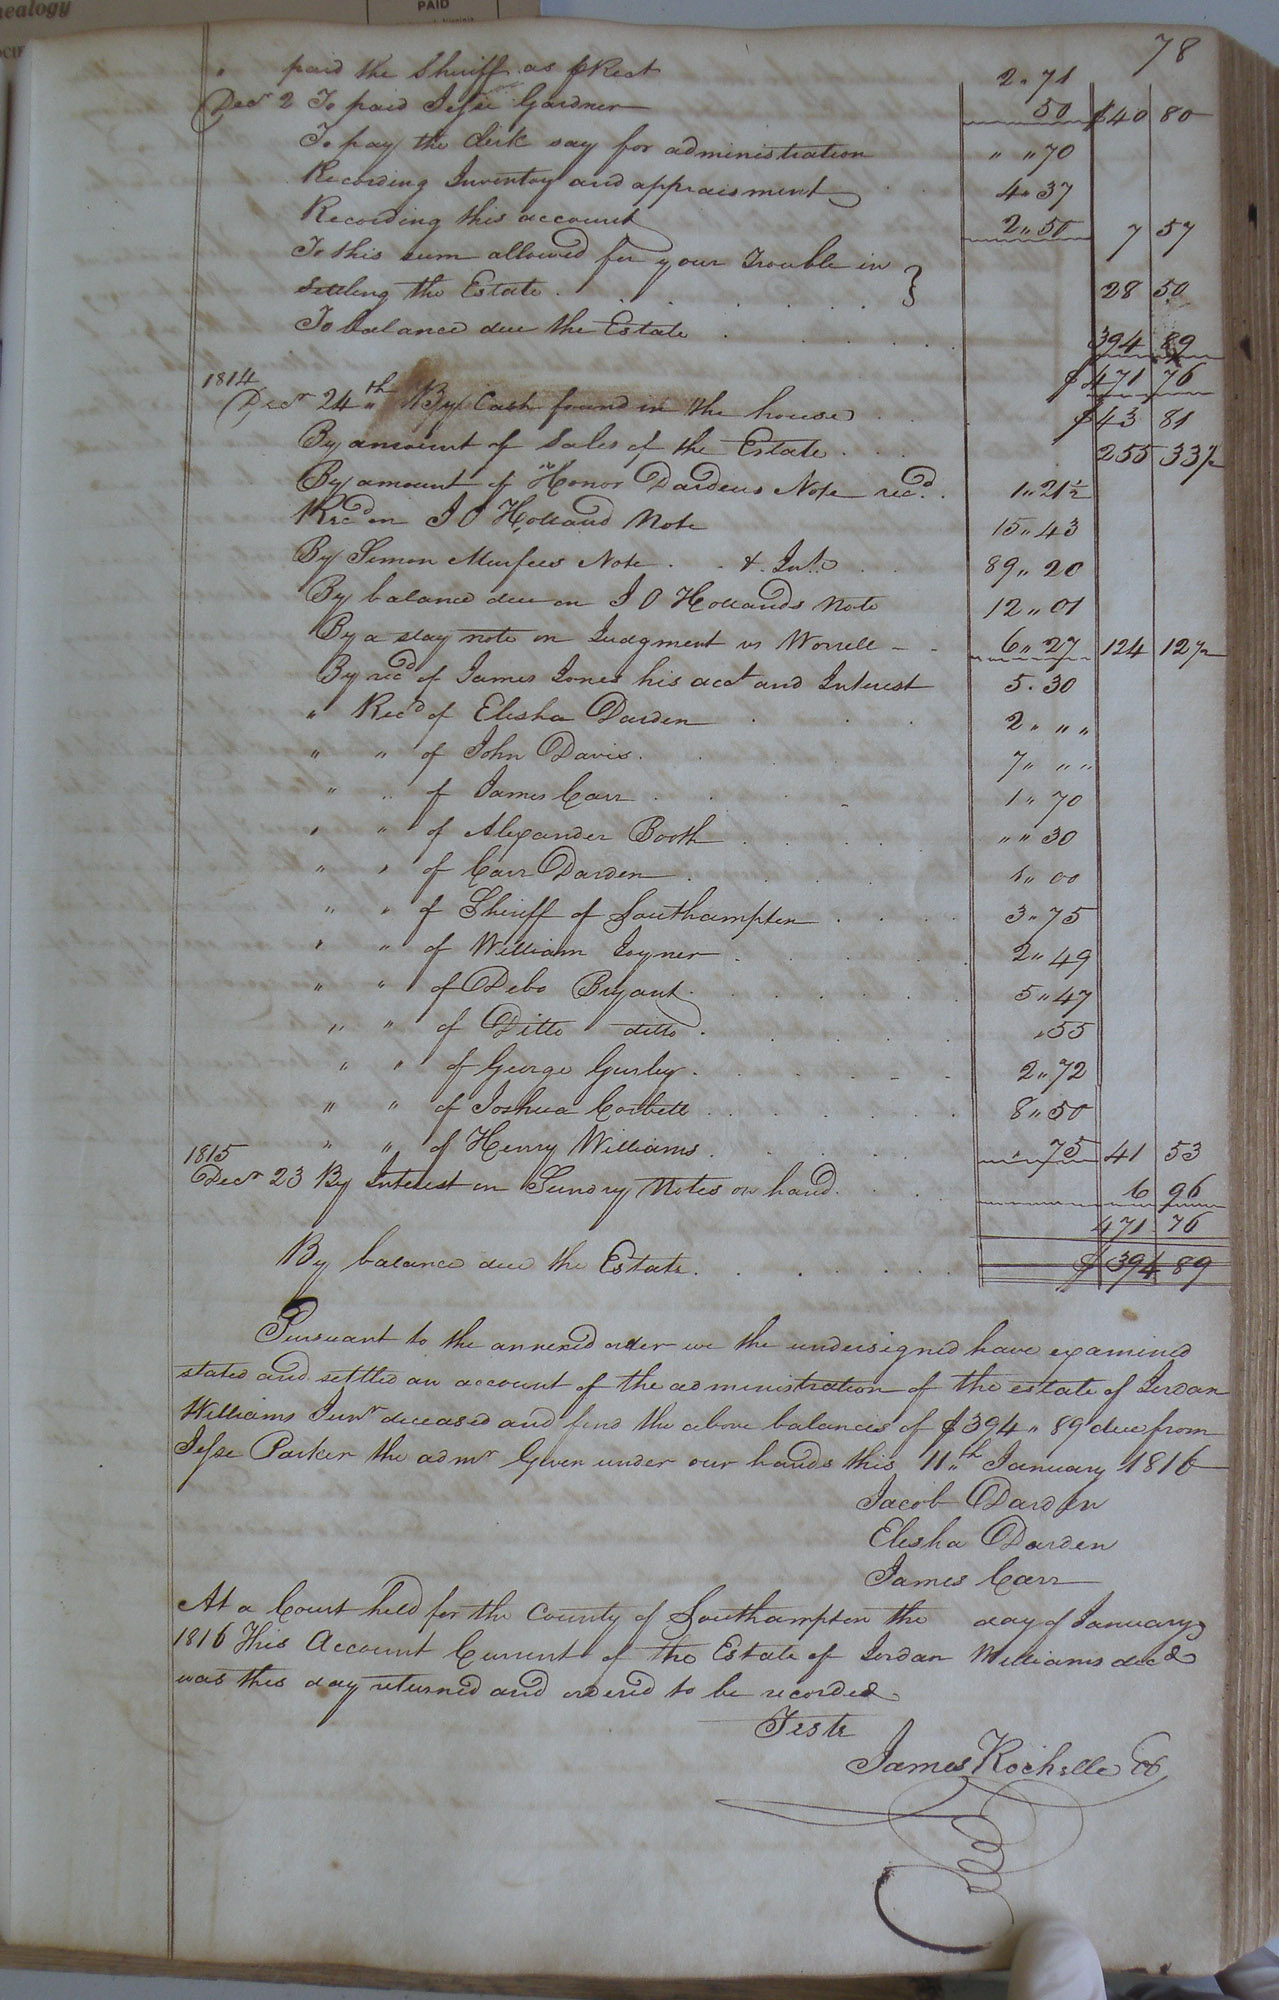 nealogy
PAID
78
" paid the Sheriff as ⅌ Rect 2 " 71
Decr 2 To paid Jesse Gardner 50 $40 80
To pay the clerk say for administration " " 70
Recording Inventory and appraisment 4 " 37
Recording this account 2 " 50 7 57
To this sum allowed for your Trouble in
settling the Estate 28 50
To balance due the Estate 394 89
$471 76
1814
Decr 24th By Cash found in the house $43 81
By amount of Sales of the Estate 255 33½
By amount of Honor Dardens Note recd 1 " 21½
Recd on J O Holland Note 15 " 43
By Simon Murfees Note & Int 89 " 20
By balance due on J O Hollands Note 12 " 01
By a stay note on Judgment vs Worrell 6 " 27 124 12½
By recd of James Jones his acct and Interest 5 " 30
" Recd of Elisha Darden 2 " " "
" " of John Davis 7 " " "
" " of James Carr 1 " 70
" " of Alexander Booth " " 30
" " of Carr Darden 1 " 00
" " of Sheriff of Southampton 3 " 75
" " of William Joyner 2 " 49
" " of Debo Bryant 5 " 47
" " of Ditto ditto " 55
" " of George Gurley 2 " 72
" " of Joshua Corbett 8 " 50
" " of Henry Williams " 75 41 53
1815
Decr 23 By Interest on Sundry Notes on hand 6 96
471 76
By balance due the Estate $394 89
Pursuant to the annexed order we the undersigned have examined
stated and settled an account of the administration of the estate of Jordan
Williams Junr deceased and find the above balance of $394 " 89 due from
Jesse Parker the admr Given under our hands this 11th January 1816
Jacob Darden
Elisha Darden
James Carr
At a Court held for the County of Southampton the day of January
1816 This Account Current of the Estate of Jordan Williams decd
was this day returned and ordered to be recorded
Teste
James Rochelle